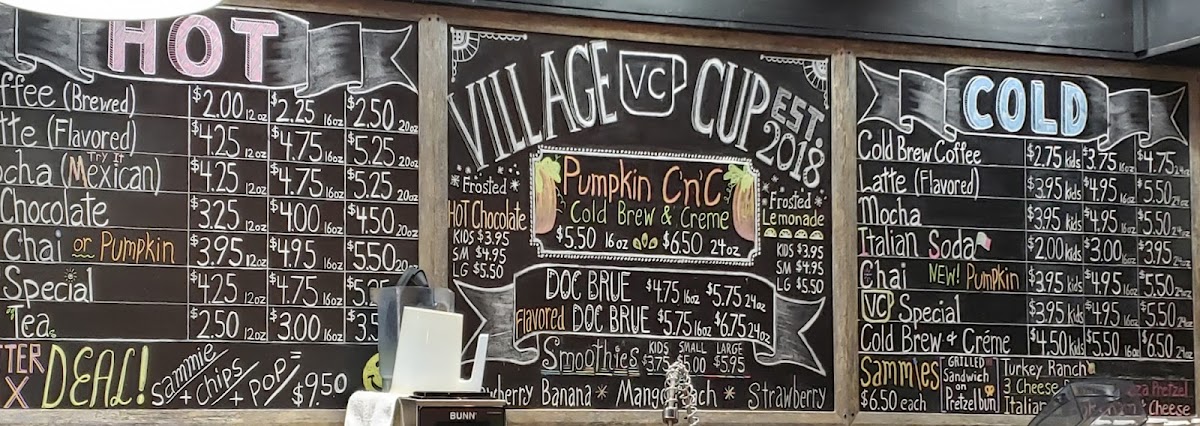 HOT
ffee (Brewed) $2.00 12oz $2.25 16oz $2.50 20oz
tte (Flavored) $4.25 12oz $4.75 16oz $5.25 20oz
Try It
ocha (Mexican) $4.25 12oz $4.75 16oz $5.25 20oz
Chocolate $3.25 12oz $4.00 16oz $4.50 20oz
Chai or Pumpkin $3.95 12oz $4.95 16oz $5.50 20oz
Special $4.25 12oz $4.75 16oz $5.25
Tea $2.50 12oz $3.00 16oz
DEAL! Sammie + chips + pop = $9.50
VILLAGE VC CUP EST. 2018
Frosted
HOT Chocolate
KIDS $3.95
SM $4.95
LG $5.50
Pumpkin C'n'C
Cold Brew & Creme
$5.50 16oz $6.50 24oz
Frosted
Lemonade
KIDS $3.95
SM $4.95
LG $5.50
DOC BRUE $4.75 16oz $5.75 24oz
Flavored DOC BRUE $5.75 16oz $6.75 24oz
KIDS SMALL LARGE
Smoothies $3.75 $5.00 $5.95
wberry Banana * Mango * Strawberry
BUNN
COLD
Cold Brew Coffee $2.75 kids $3.75 16oz $4.75 24oz
Latte (Flavored) $3.95 kids $4.95 16oz $5.50 24oz
Mocha $3.95 kids $4.95 16oz $5.50 24oz
Italian Soda $2.00 kids $3.00 16oz $3.95 24oz
Chai NEW! Pumpkin $3.95 kids $4.95 16oz $5.50 24oz
VC Special $3.95 kids $4.95 16oz $5.50 24oz
Cold Brew & Créme $4.50 kids $5.50 16oz $6.50 24oz
Sammies
$6.50 each
GRILLED
Sandwich
on
Pretzel bun
Turkey Ranch
3 Cheese
Pretzel
Italian
Cheese